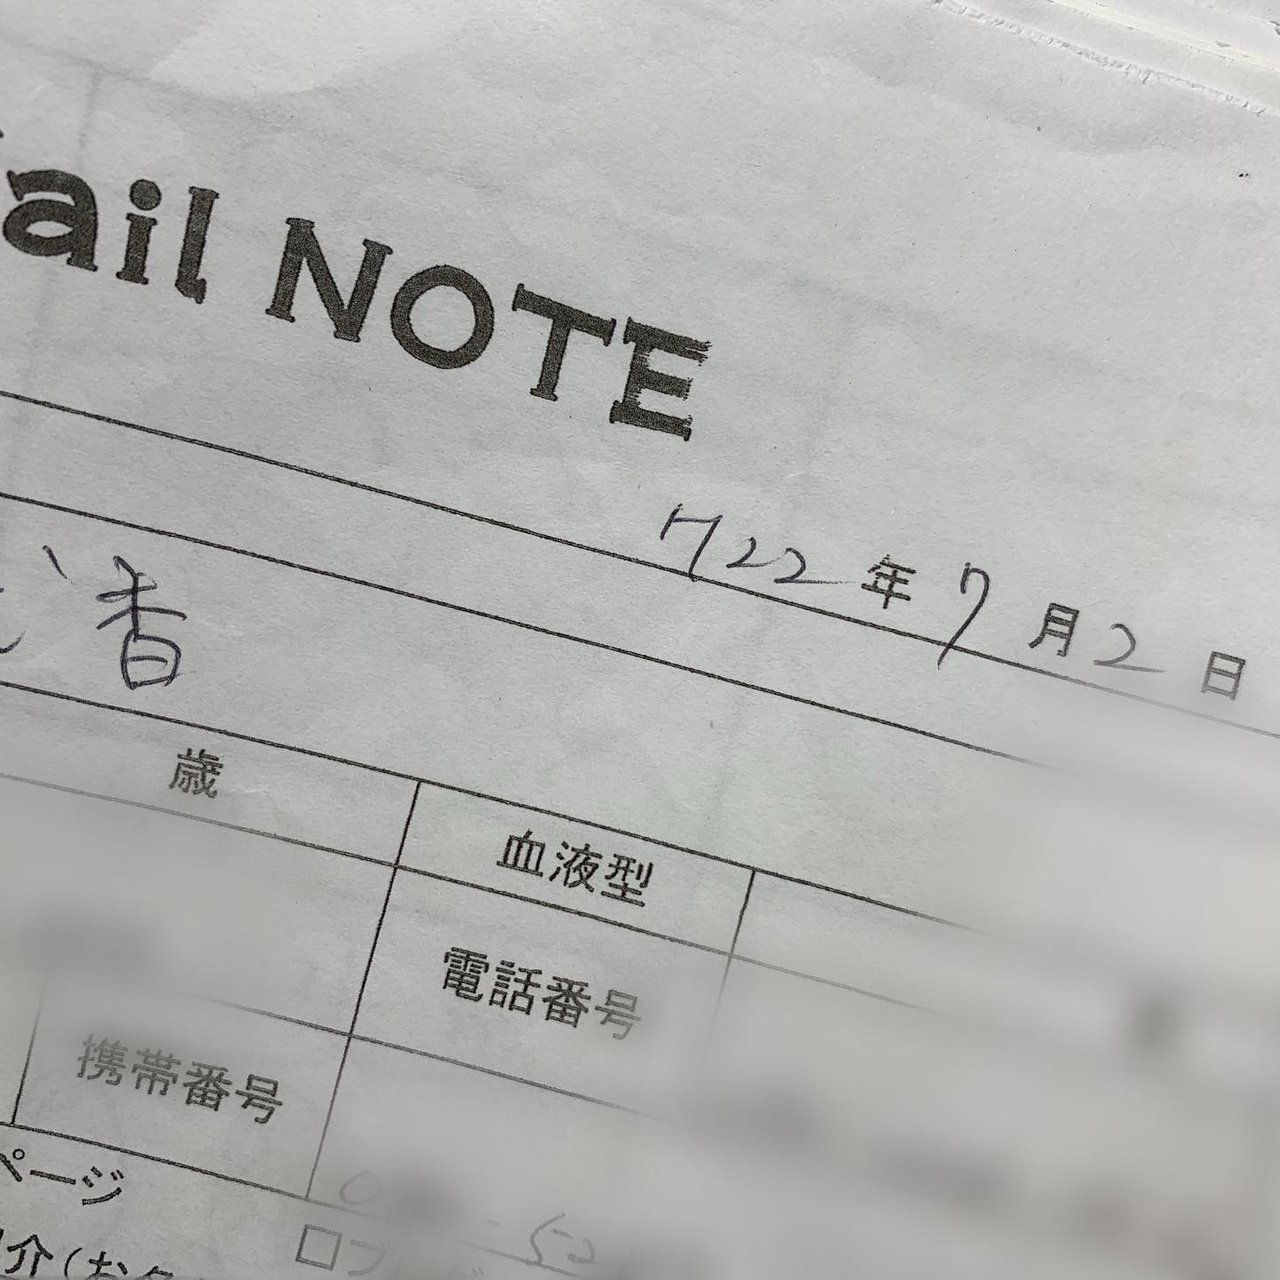 ail NOTE
722年7月2日
香
歳
血液型
電話番号
携帯番号
ページ
介(お